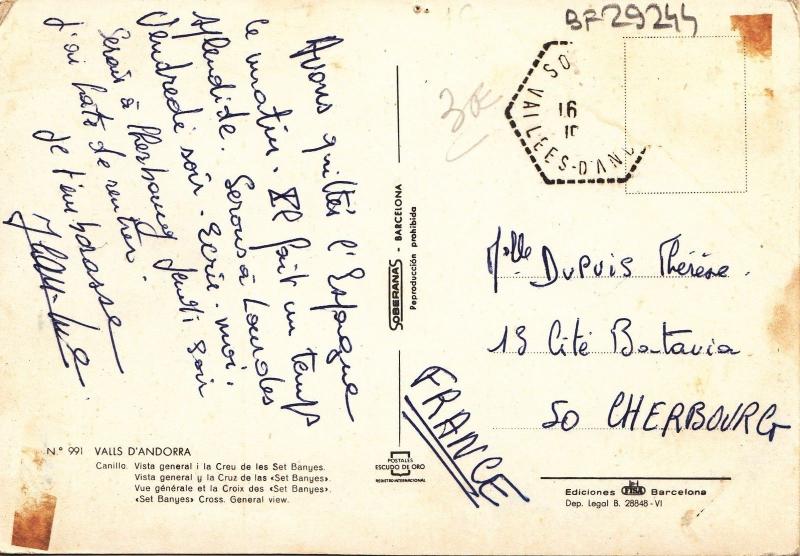 BF29244
30€
Avons quitté l'Espagne
ce matin. Il fait un temps
splendide. Serons à Lourdes
Vendredi soir. Ecris-moi.
Serai à Cherbourg Jeudi soir
j'ai hate de rentrer.
je t'embrasse
SO
16
VALLEES-D'AN
SOBERANAS - BARCELONA
Reproducción prohibida
Melle DUPUIS Thérèse.
13 Cité Batavia
50 CHERBOURG
FRANCE
N.º 991 VALLS D'ANDORRA
Canillo. Vista general i la Creu de les Set Banyes.
Vista general y la Cruz de las «Set Banyes».
Vue générale et la Croix des «Set Banyes».
«Set Banyes» Cross. General view.
POSTALES
ESCUDO DE ORO
REGISTRO INTERNACIONAL
Ediciones FISA Barcelona
Dep. Legal B. 28848-VI